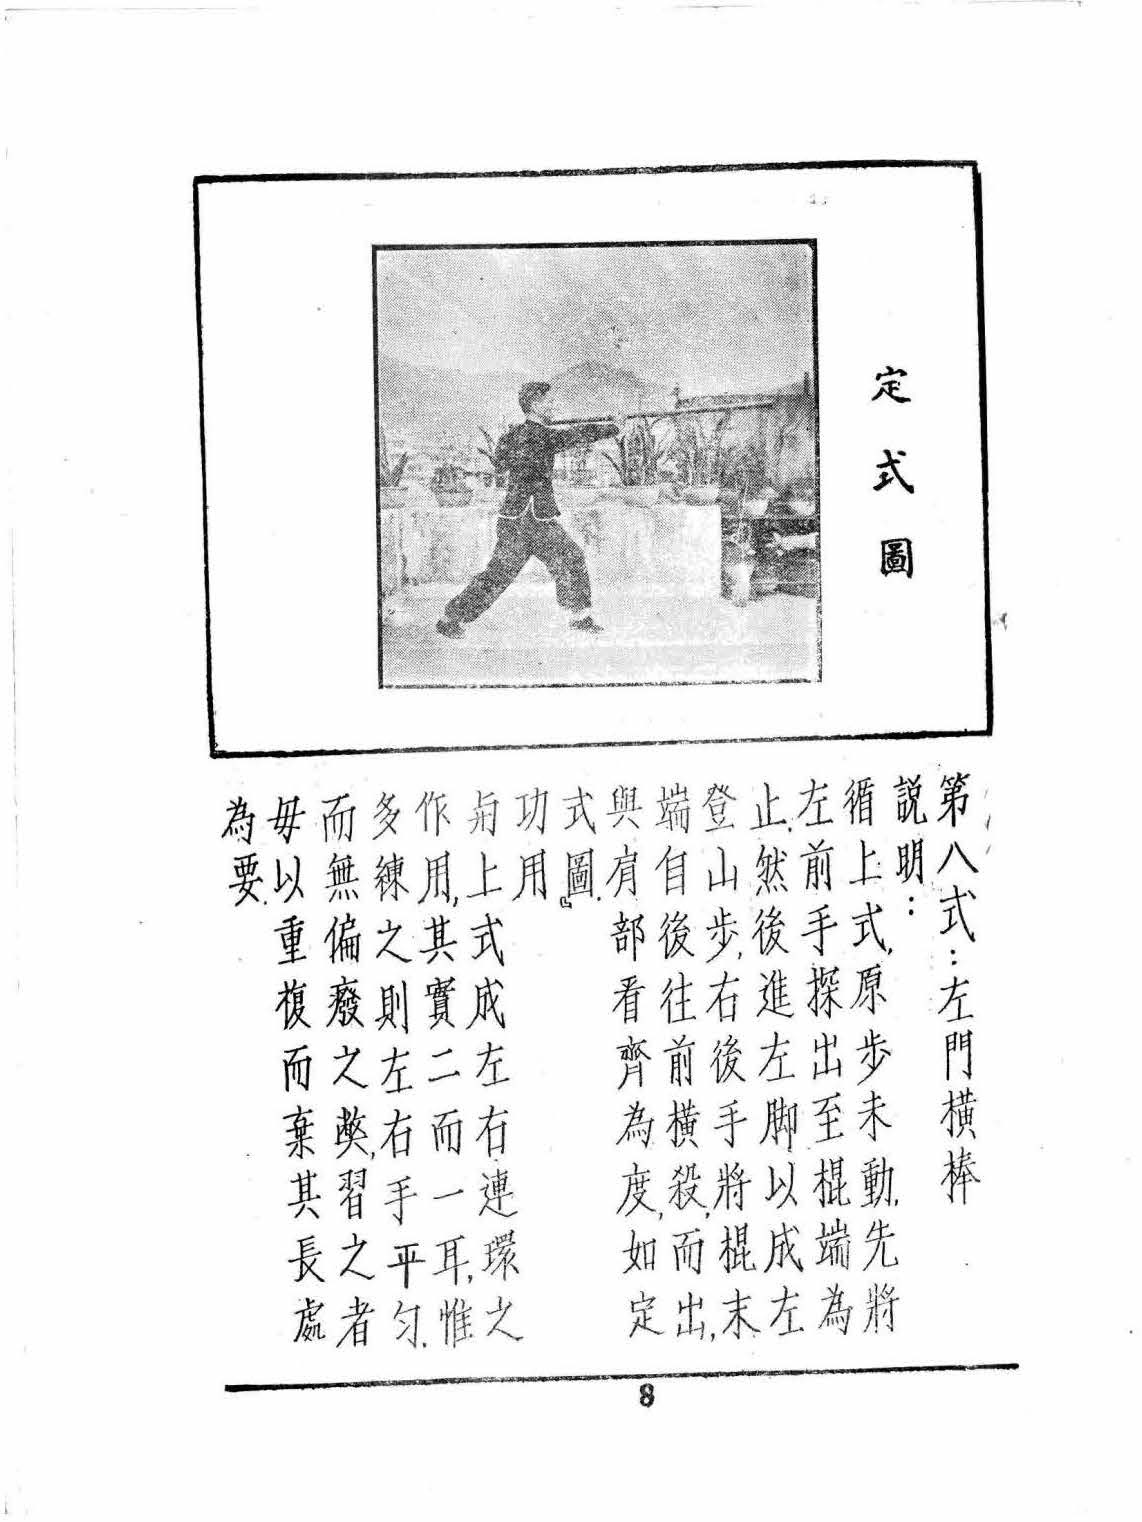 定式圖
第八式：左門橫棒
説明：
循上式，原步未動，先將
左前手探出至棍端為
止，然後進左脚以成左
登山步，右後手將棍末
端自後往前橫殺，而出，
與肩部看齊為度，如定
式圖。
功用
與上式成左右連環之
作用，其實二而一耳，惟
多練之則左右手平匀，
而無偏廢之弊，習之者
毋以重複而棄其長處
為要。
8